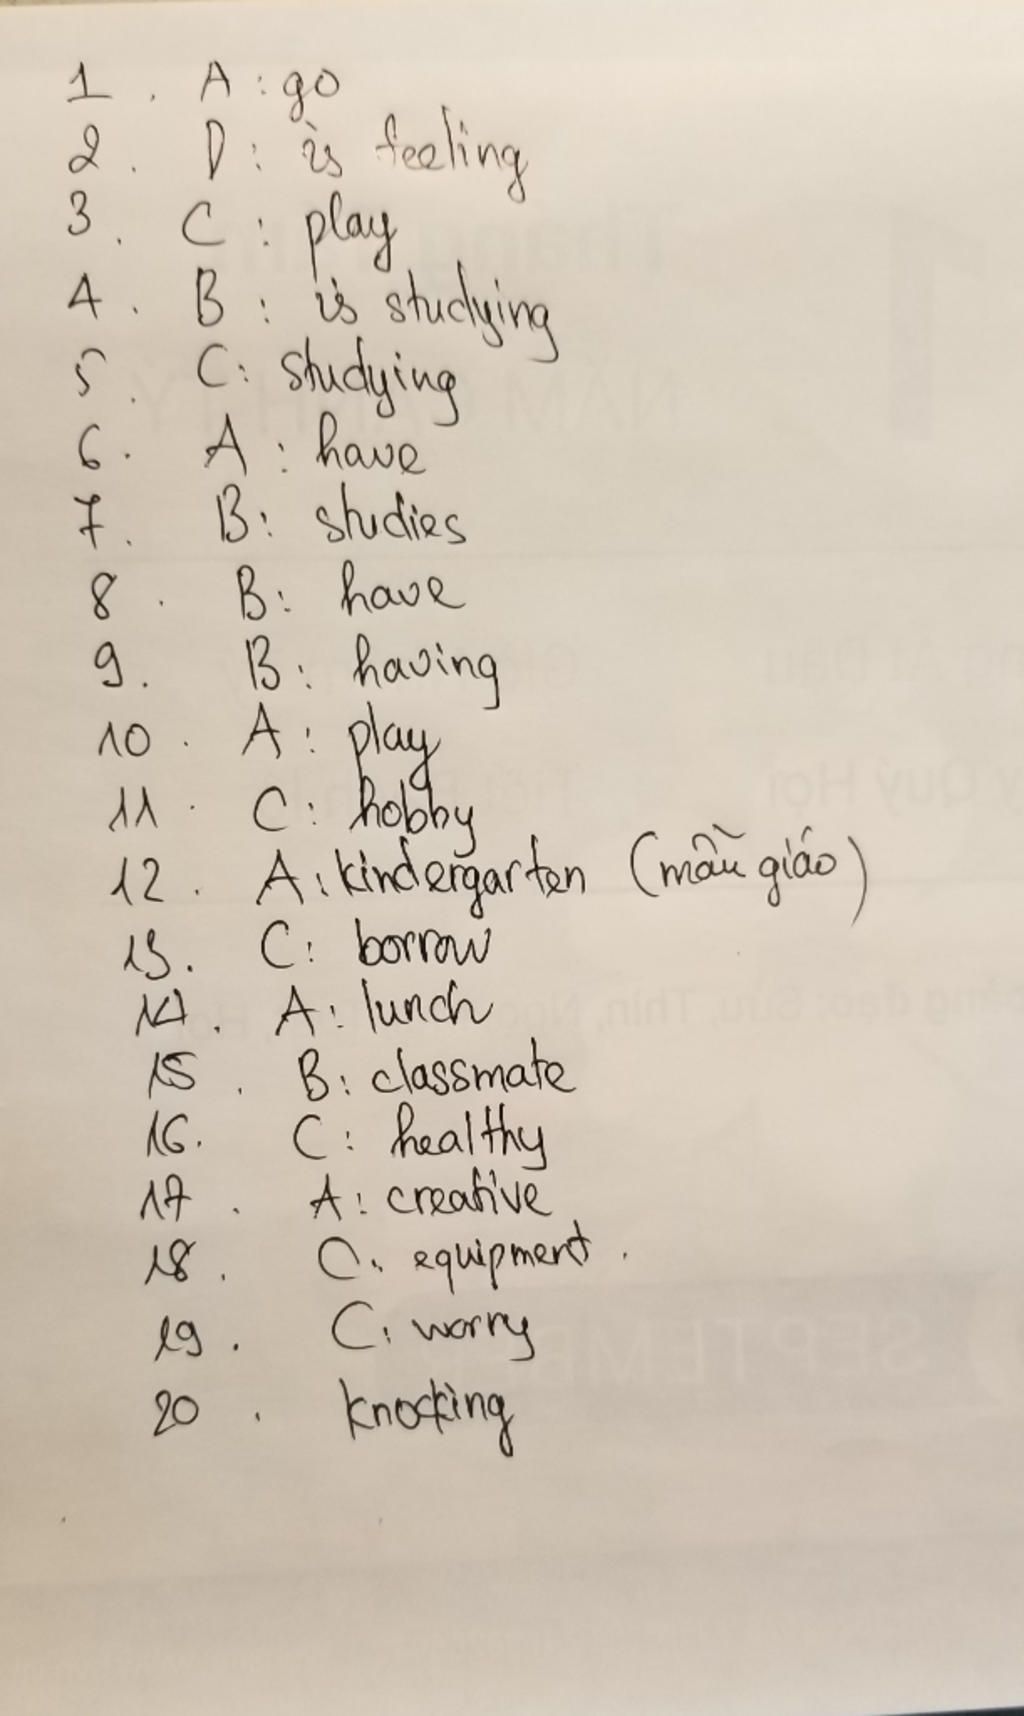 1. A: go
2. D: is feeling
3. C: play
4. B: is studying
5. C: studying
6. A: have
7. B: studies
8. B: have
9. B: having
10. A: play
11. C: hobby
12. A: kindergarten (mẫu giáo)
13. C: borrow
14. A: lunch
15. B: classmate
16. C: healthy
17. A: creative
18. C: equipment.
19. C: worry
20. knocking